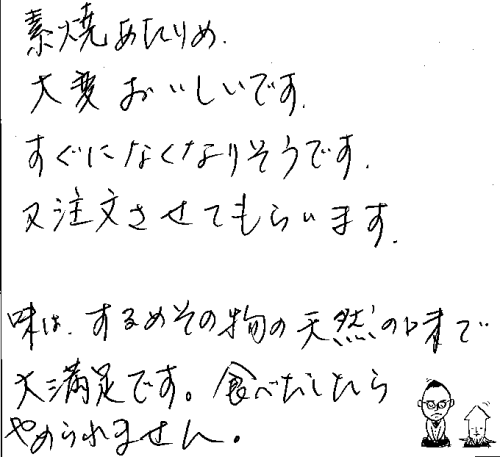 素焼あたりめ.
大変おいしいです.
すぐになくなりそうです.
又注文させてもらいます.
味は、するめその物の天然の味で
大満足です。食べだしたら
やめられません。